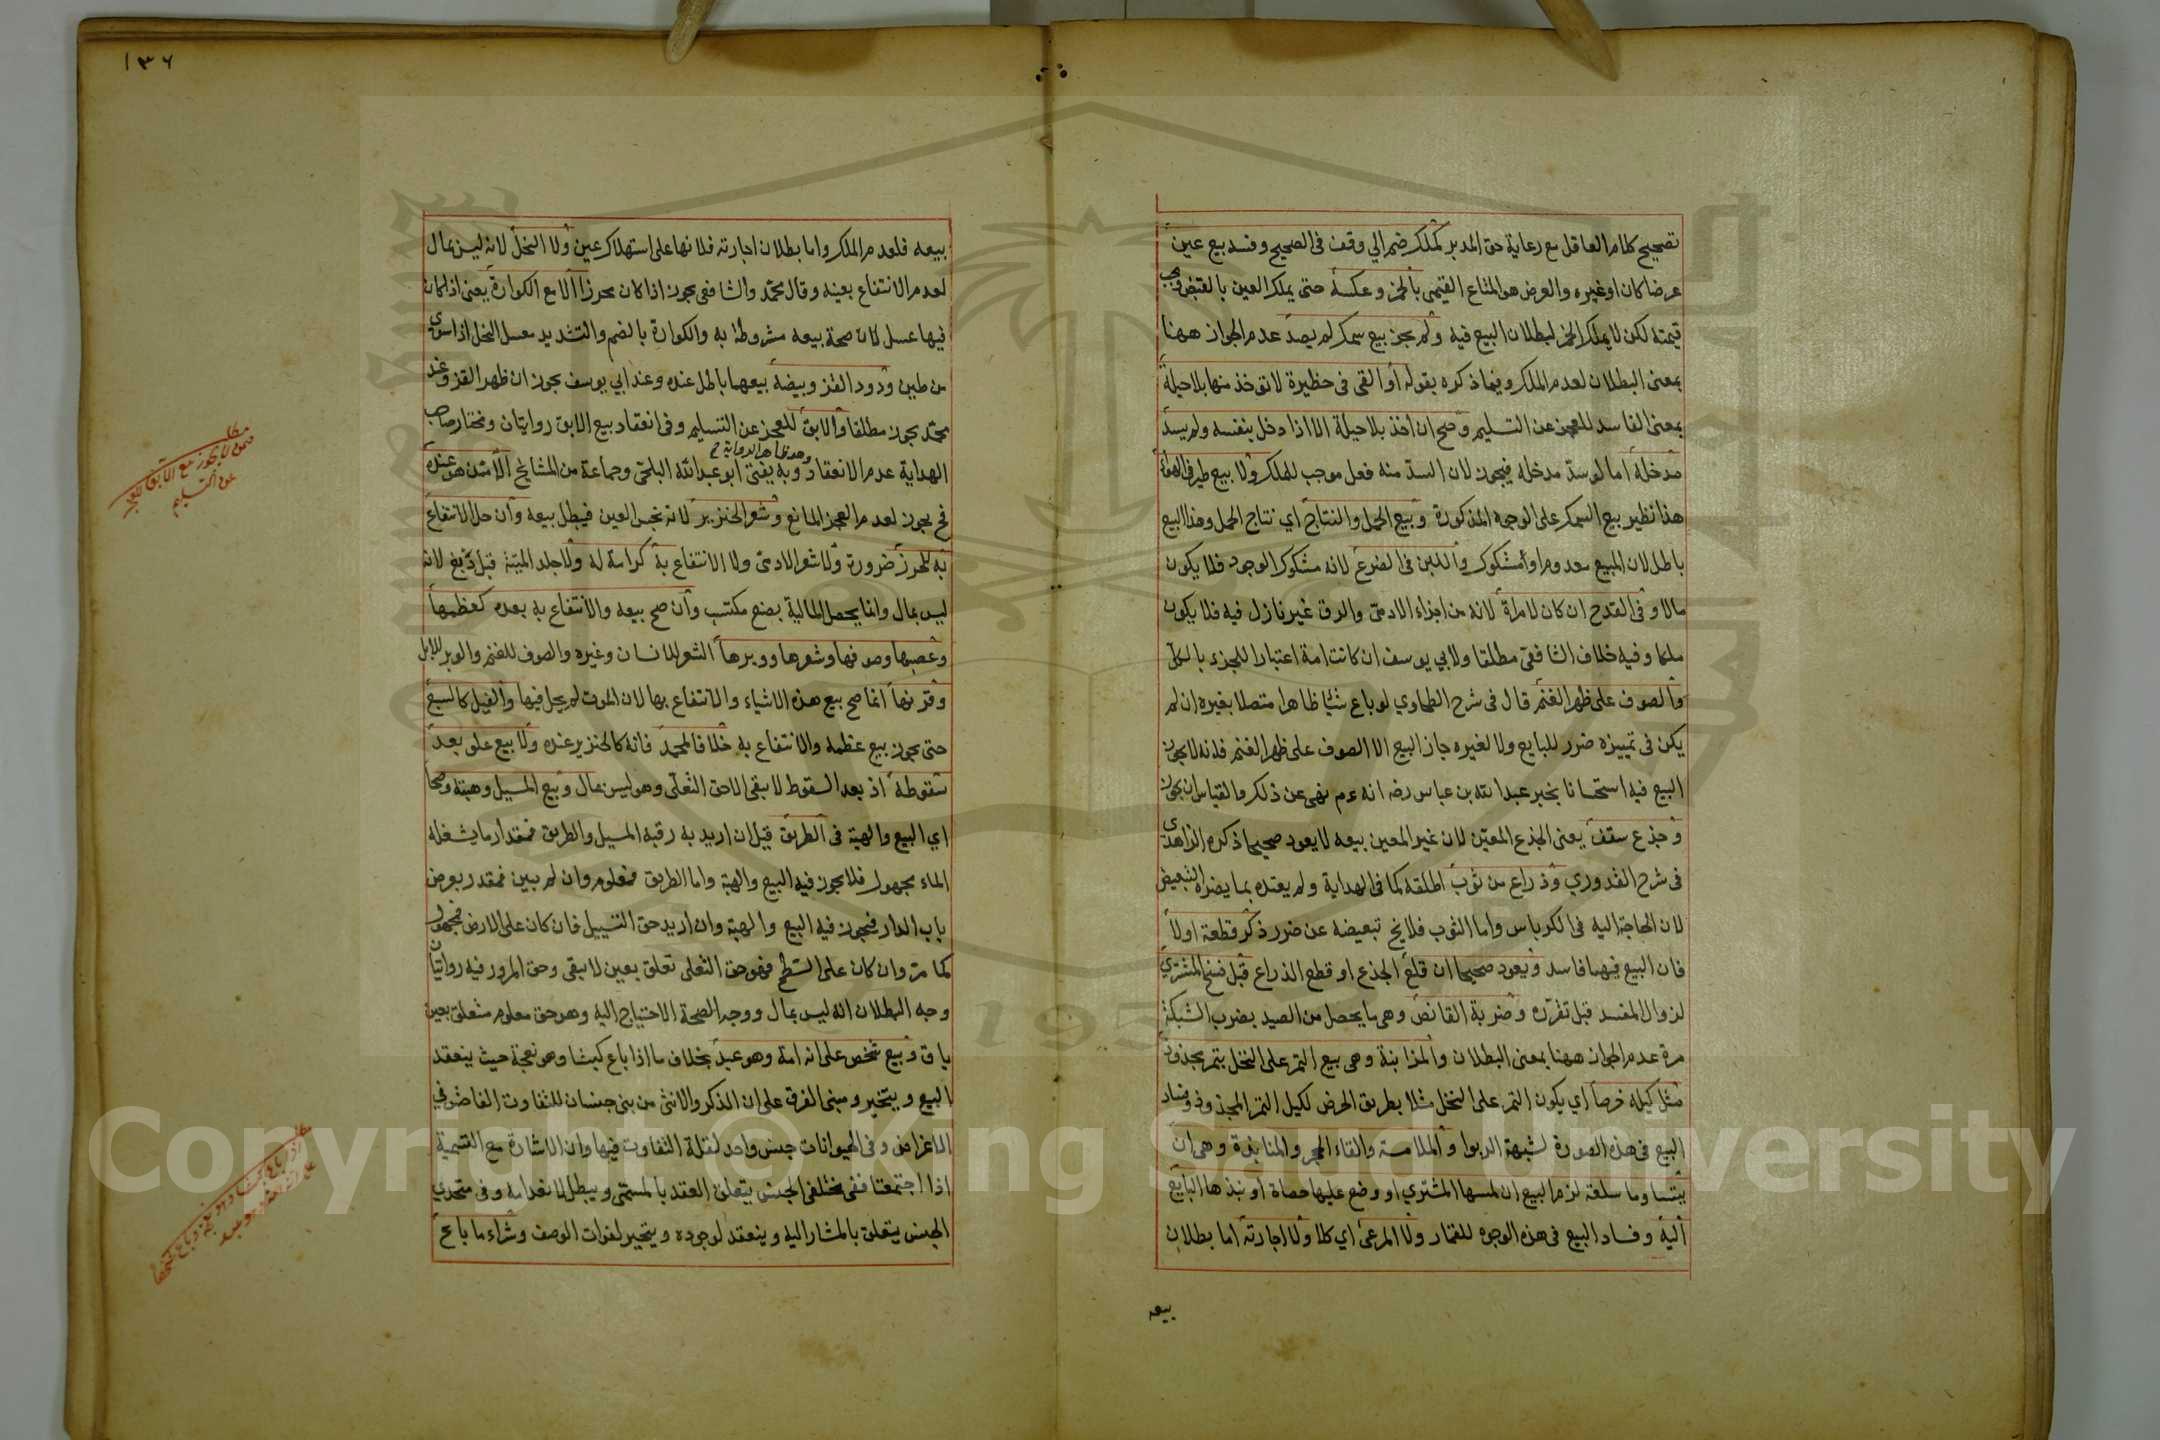 تصحيح كلام العاقل مع رعاية حق المدبر كملك ضم الي وقف فى الصحيح وفسد بيع عين
عرضا كان او غيره والعرض هو المتاع القيمى بالخمر وعكسه حتى يملك العين بالقبض ويجب
قيمته لكن لا يملك الخمر لبطلان البيع فيه ولم يجز بيع سمك لم يصد عدم الجواز ههنا
بمعنى البطلان لعدم الملك وفيما ذكره بقوله أو القى فى حظيرة لا توخذ منها بلا حيلة
بمعنى الفاسد للعجز عن التسليم وصح ان اخذ بلا حيلة الا اذا دخل بنفسه ولم يسد
مدخله اما لو سد مدخله فيجوز لان السد منه فعل موجب للملك ولا بيع طير فى الهواء
هذا نظير بيع السمك على الوجوه المذكورة وبيع الحمل والنتاج اي نتاج الحمل وهذا البيع
باطل لان المبيع معدوم او مشكوك واللبن فى الضرع لانه مشكوك الوجود فلا يكون
مالا وفى القدح ان كان لامراة لانه من اجزاء الادمى والرق غير نازل فيه فلا يكون
ملكا وفيه خلاف الشافعى مطلقا ولابي يوسف ان كانت امة اعتبارا للجزء بالكل
والصوف على ظهر الغنم قال فى شرح الطحاوي لو باع شيئا ظاهرا متصلا بغيره ان لم
يكن فى تمييزه ضرر للبايع ولا لغيره جاز البيع الا الصوف على ظهر الغنم فانه لا يجوز
البيع فيه استحسانا بخبر عبد الله بن عباس رضه انه عم نهى عن ذلك والقياس ان يجوز
وجذع سقف يعنى الجذع المعين لان غير المعين بيعه لا يعود صحيحا ذكره الزاهدى
فى شرح القدوري وذراع من ثوب اطلقه كما فى الهداية ولم يقيده بما يضره التبعيض
لان الحاجة اليه فى الكرباس واما الثوب فلا يخ تبعيضه عن ضرر ذكر قطعه اولا
فان البيع فيهما فاسد ويعود صحيحا ان قلع الجذع او قطع الذراع قبل فسخ المشتري
لزوال المفسد قبل تقرره وضربة القانص وهى ما يحصل من الصيد بضرب الشبكة
مرة عدم الجواز ههنا بمعنى البطلان والمزابنة وهى بيع الثمر على النخل بتمر مجذوذ
مثل كيله خرصا اي يكون الثمر على النخل مثلا بطريق الخرص لكيل التمر المجذوذ وفساد
البيع فى هذه الصورة لشبهة الربوا والملامسة والقاء الحجر والمنابذة وهى ان
يتساوما سلعة لزم البيع ان لمسها المشتري او وضع عليها حصاة او نبذها البايع
اليه وفساد البيع فى هذه الوجوه للقمار ولا المرعى اي كلا ولا اجارته اما بطلان
بيعه
١٣٦
بيعه فلعدم الملك واما بطلان اجارته فلانها على استهلاك عين ولا النحل لانه ليس بمال
لعدم الانتفاع بعينه وقال محمد والشافعى يجوز اذا كان محرزا الا مع الكوارة يعنى اذا كان
فيها عسل لان صحة بيعه مشروطة به والكوارة بالضم والتشديد معسل النحل اذا سوى
من طين ودود القز وبيضه بيعهما باطل عنده وعند ابي يوسف يجوز ان ظهر القز وعند
محمد يجوز مطلقا والابق للعجز عن التسليم وفى انعقاد بيع الابق روايتان ومختار صاحب
الهداية عدم الانعقاد وبه يفتى ابو عبد الله البلخى وجماعة من المشايخ الا ممن هو عنده
فح يجوز لعدم العجز المانع وشعر الخنزير لانه نجس العين فيبطل بيعه وان حل الانتفاع
به للخرز ضرورة ولا شعر الادمى ولا الانتفاع به كرامة له ولا جلد الميتة قبل دبغ لانه
ليس بمال وانما يحصل المالية بصنع مكتسب وان صح بيعه والانتفاع به بعده كعظمها
وعصبها وصوفها وشعرها ووبرها الشعر للانسان وغيره والصوف للغنم والوبر للابل
وقرنها انما صح بيع هذه الاشياء والانتفاع بها لان الموت لم يحل فيها والفيل كالسبع
حتى يجوز بيع عظمه والانتفاع به خلافا لمحمد فانه كالخنزير عنده ولا بيع علو بعد
سقوطه اذ بعد السقوط لا يبقى الا حق التعلى وهو ليس بمال وبيع المسيل وهبته وصحا
اي البيع والهبة فى الطريق قيل ان اريد به رقبة المسيل والطريق فمقدار ما يشغله
الماء مجهول فلا يجوز فيه البيع والهبة واما الطريق فمعلوم وان لم يبين فمقدر بعرض
باب الدار فيجوز فيه البيع والهبة وان اريد حق التسييل فان كان على الارض فمجهول
كما مر وان كان على السطح فهو حق التعلى تعلق بعين لا يبقى وحق المرور فيه روايتان
وجه البطلان انه ليس بمال ووجه الصحة الاحتياج اليه وهو حق معلوم متعلق بعين
باق وبيع شخص على انه امة وهو عبد بخلاف ما اذا باع كبشا وهو نعجة حيث ينعقد
البيع ويتخير ومبنى الفرق على ان الذكر والانثى من بنى جنسان للتفاوت الفاحش في
الاغراض وفى الحيوانات جنس واحد لقلة التفاوت فيها وان الاشارة مع التسمية
اذا اجتمعتا ففى مختلفى الجنس يتعلق العقد بالمسمى ويبطل لانعدامه وفى متحدي
الجنس يتعلق بالمشار اليه وينعقد لوجوده ويتخير لفوات الوصف وشراء ما باع